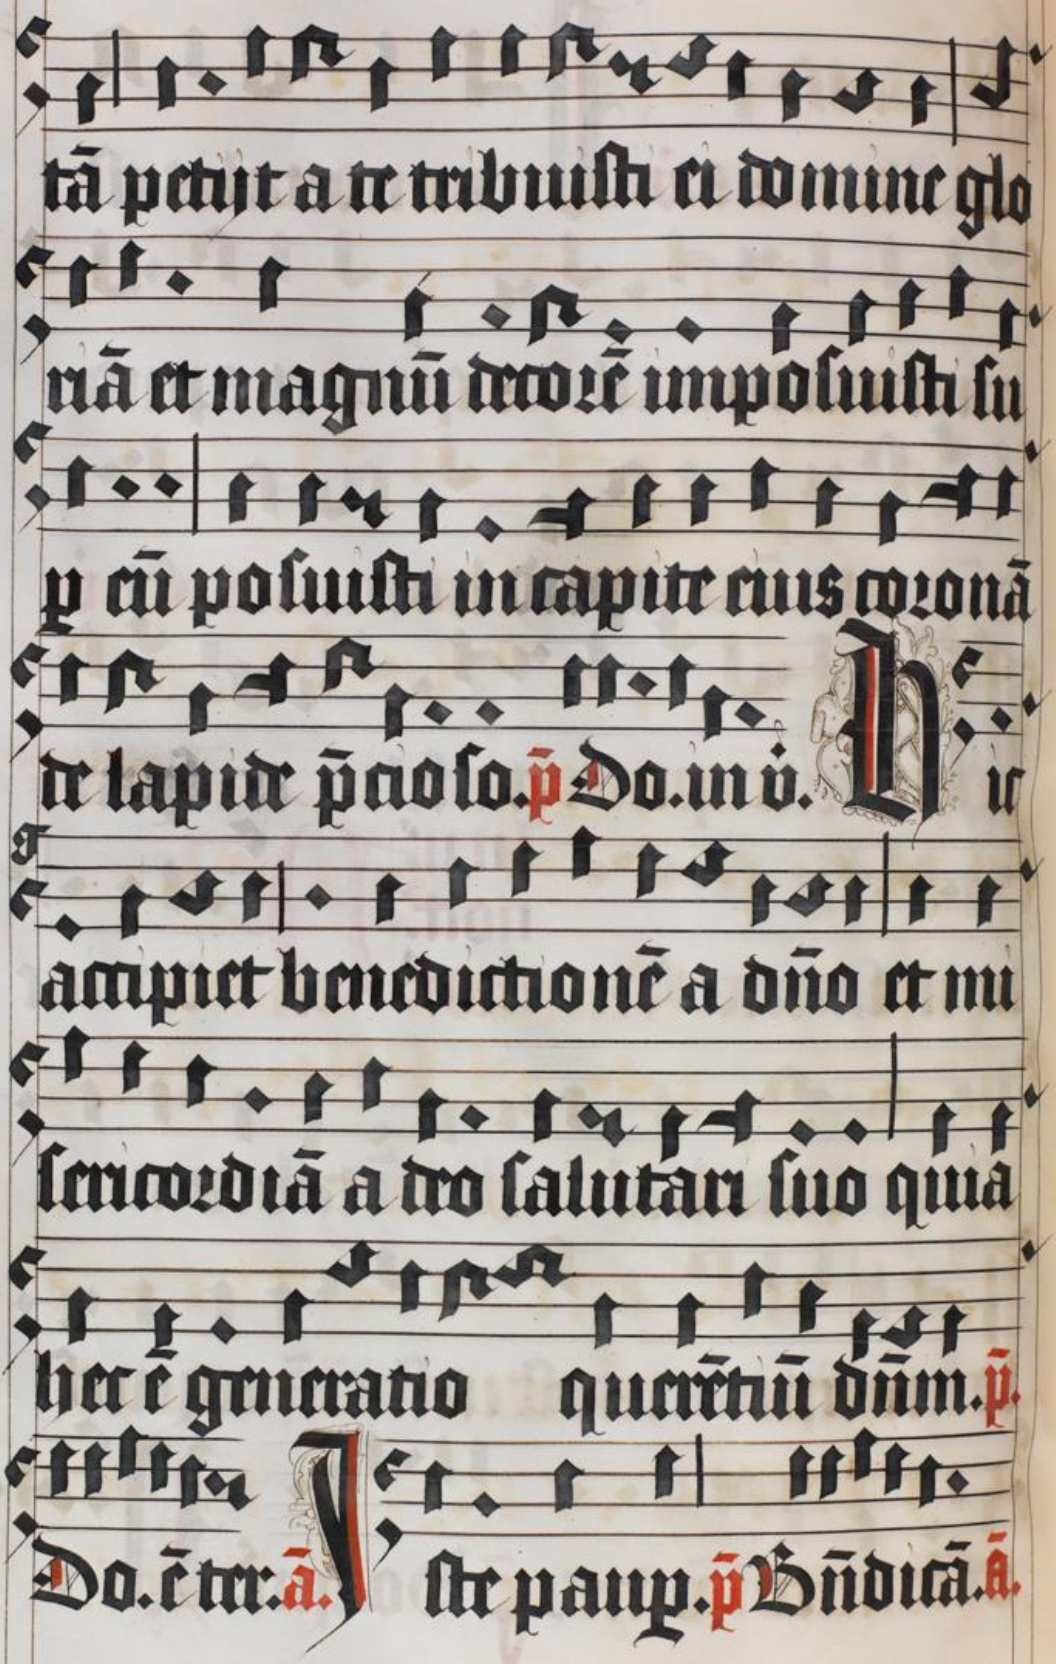 tā petijt a te tribuisti ei domine glo
riā et magnū decorē imposuisti su
ꝑ eū posuisti in capite eius coronā
de lapide p̄cioso. p̄ Do. in v̇. H ic
accipiet benedictionē a dn̄o et mi
sericordiā a deo salutari suo quia
hec ē generatio querētiū dn̄m. p̄.
Do. ē ter. ā. I ste pauꝑ. p̄ Bn̄dicā. ā.